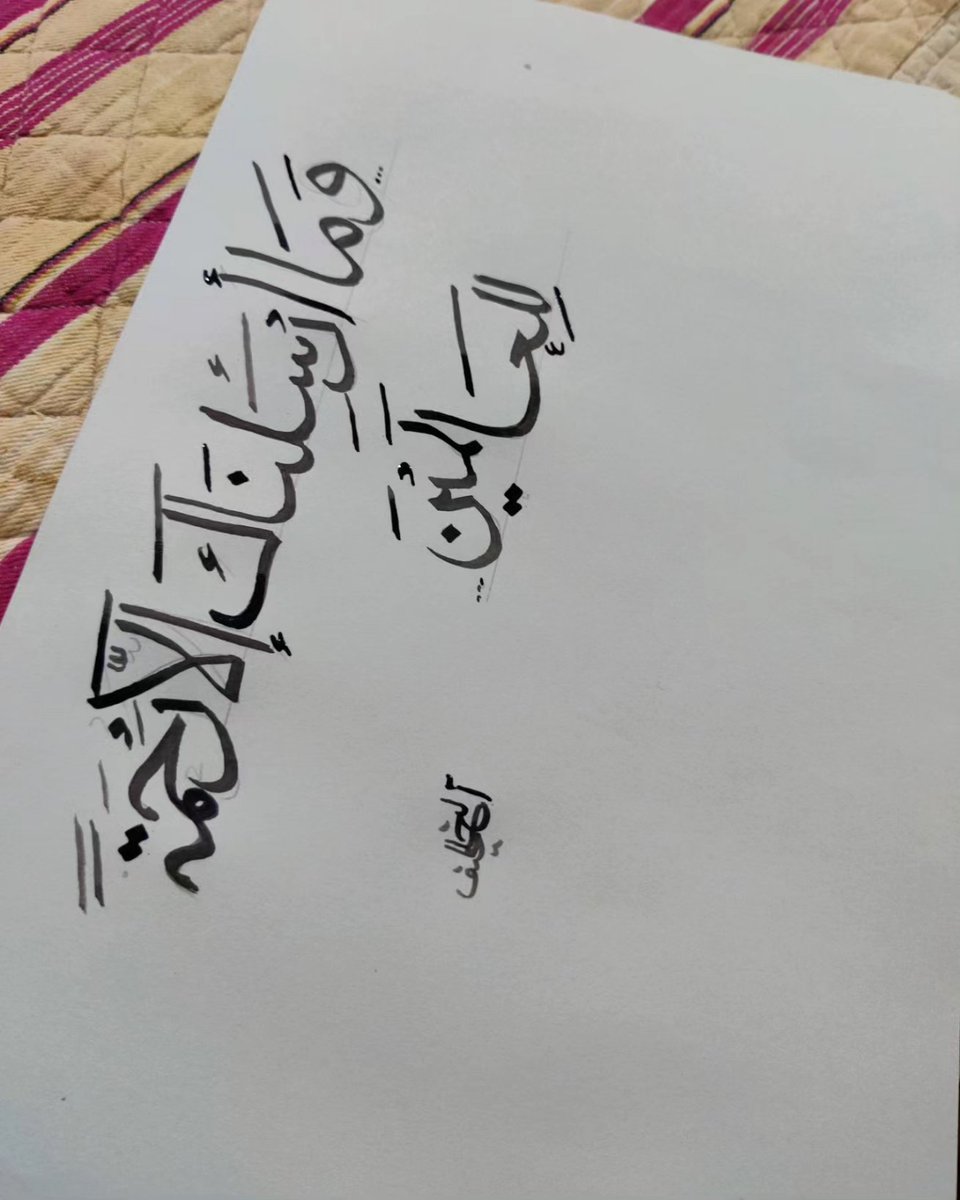 وَمَا أَرْسَلْنَاكَ إِلَّا رَحْمَةً
لِلْعَالَمِيْنَ